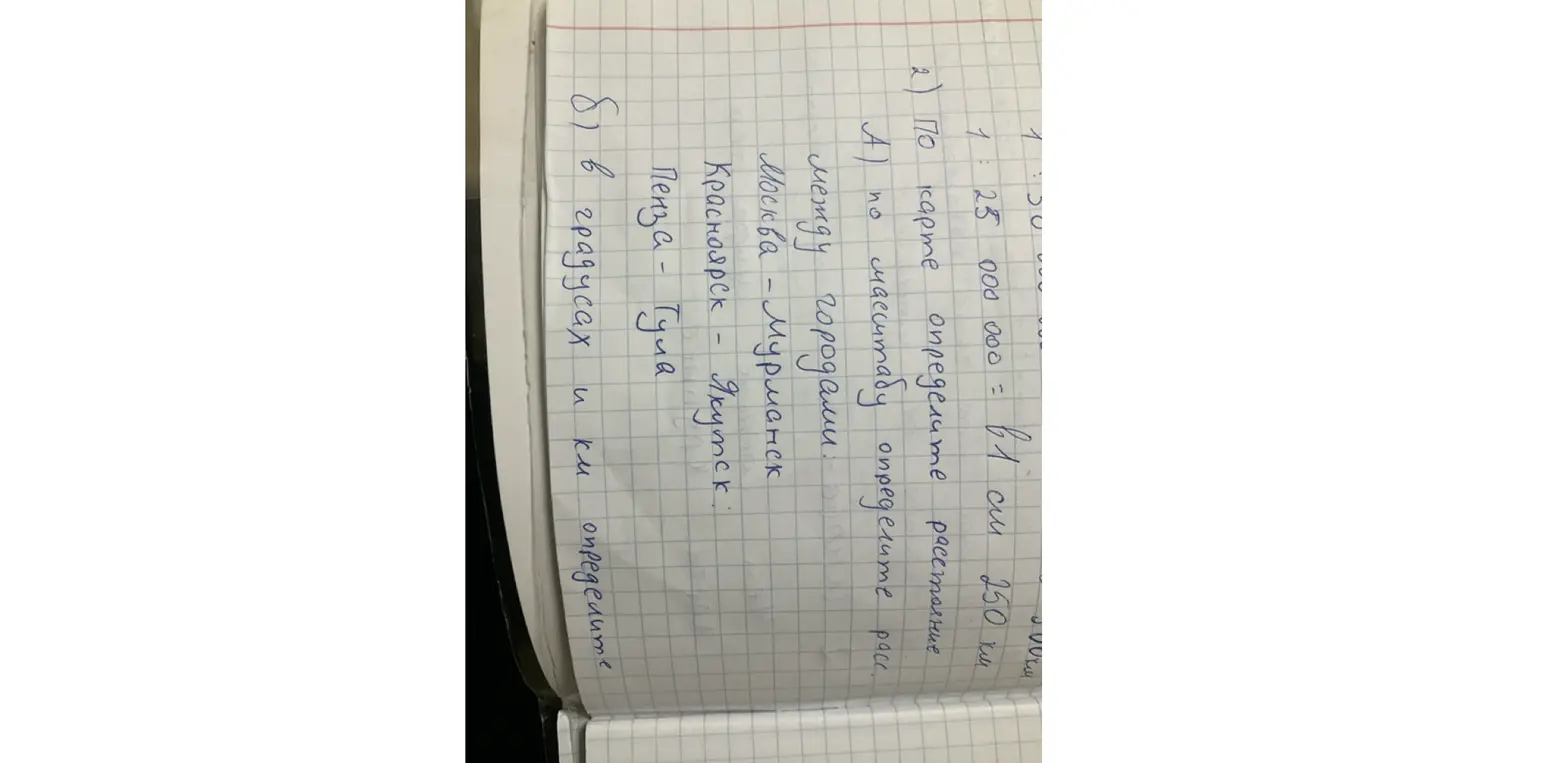 1 : 25 000 000 = в 1 см 250 км
2) По карте определите расстояние
А) по масштабу определите расс.
между городами:
Москва - Мурманск
Красноярск - Якутск:
Пенза - Тула
б) в градусах и км определите